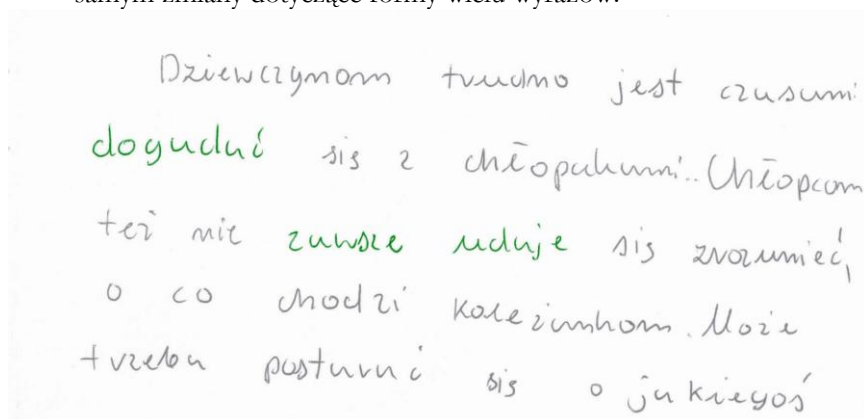 samym zmiany dotyczące formy wielu wyrazów.
Dziewczynom trudno jest czusumi
doguduć sis z chłopukumi. Chłopcom
też nie zuwsze uduje sis zrozumieć,
o co chodzi koleżunkom. Może
trzebu posturuć sis o jukiegoś